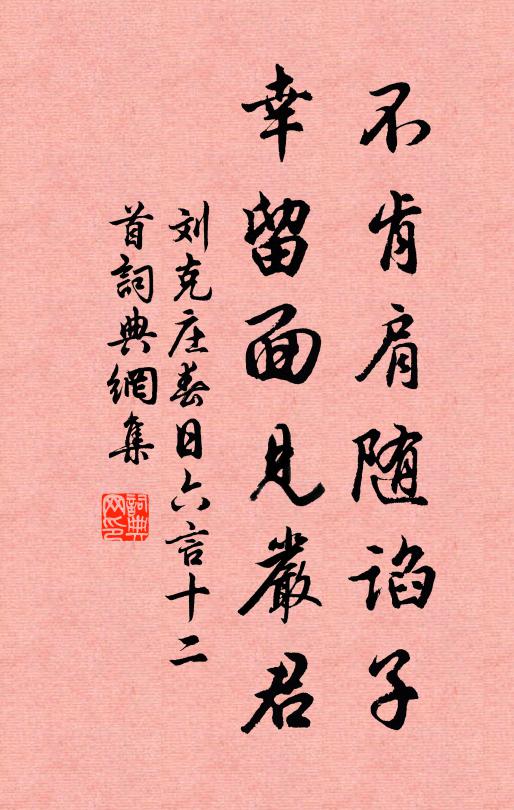 不肯肩随谄子
幸留面見嚴君
刘克庄春日六言十二
首詞典網集
詞典网印